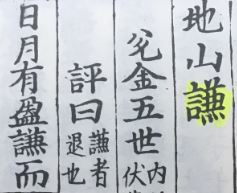 地山謙
兌金五世伏內
評曰謙者退也
日月有盈謙而